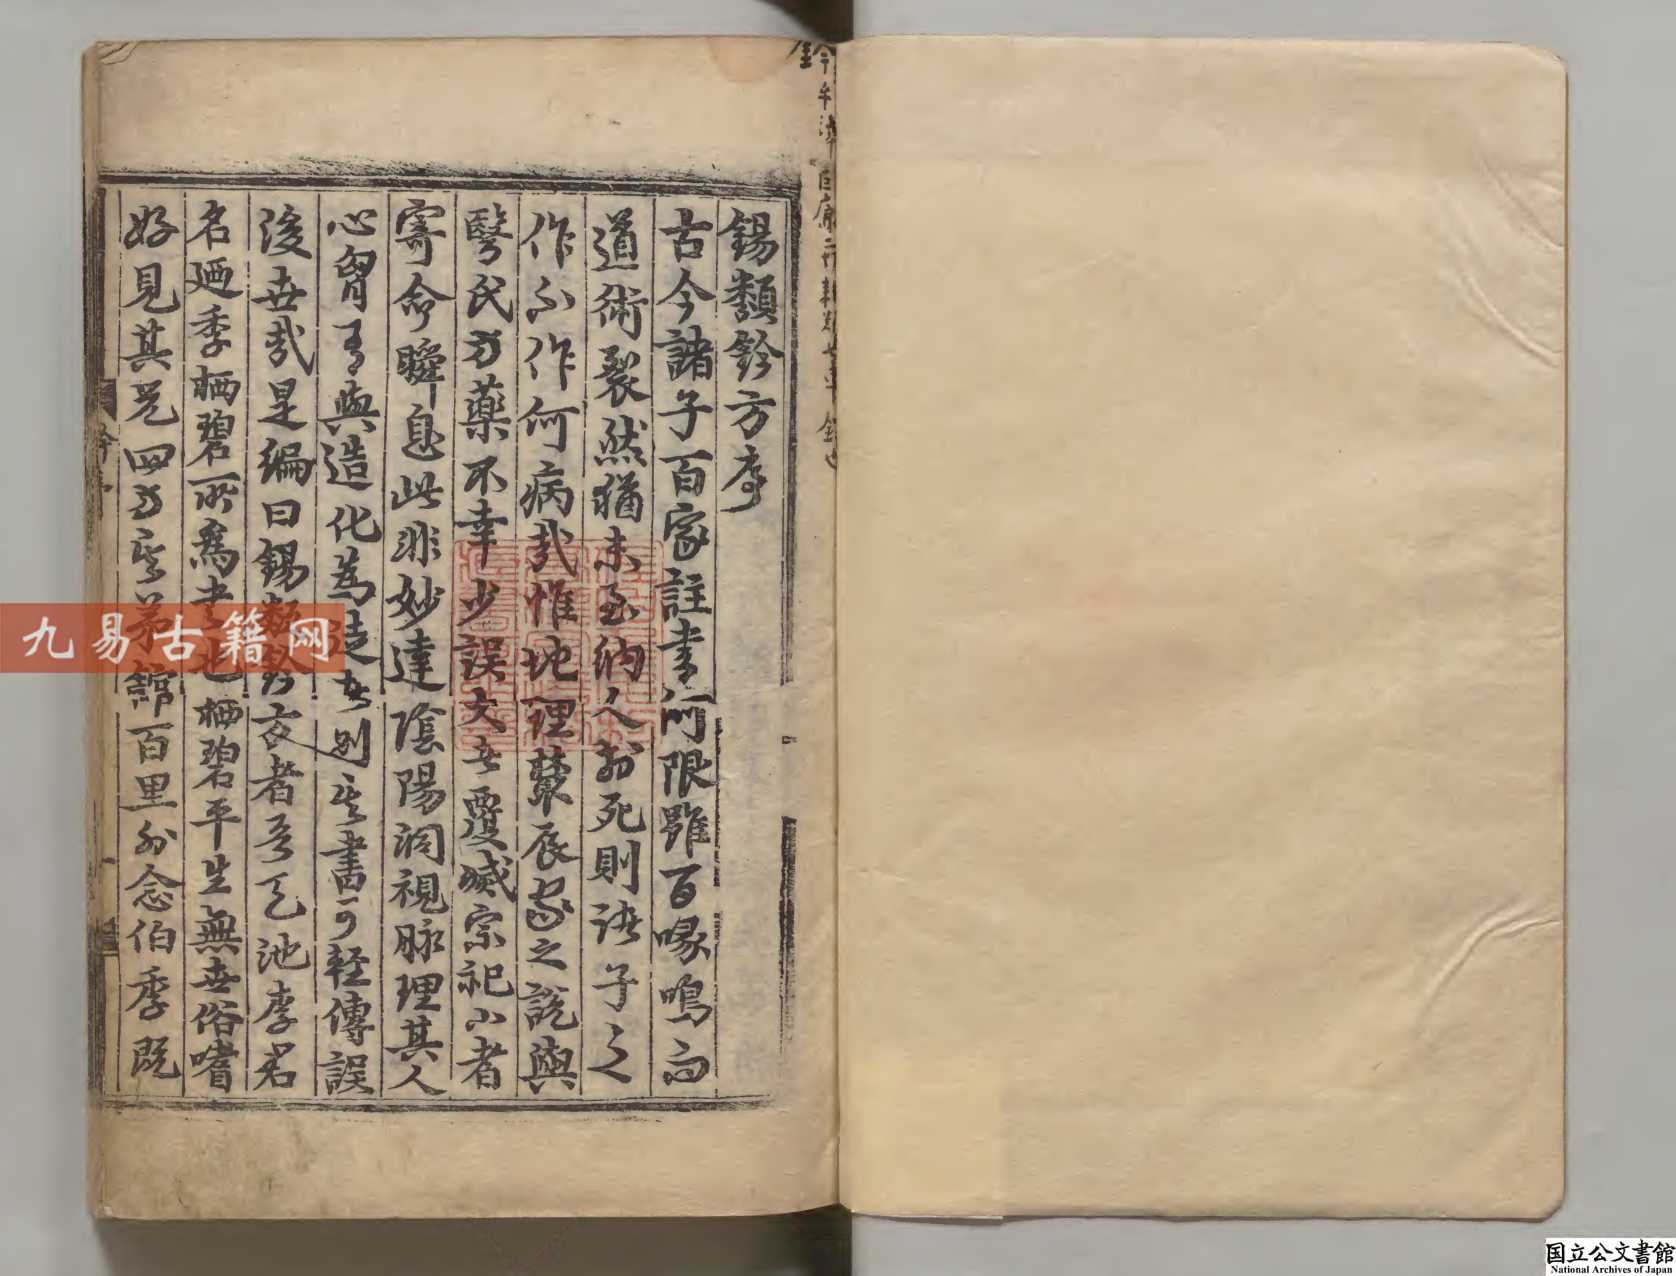 錫類鈐方序
古今諸子百家註書何限雖百喙鳴而
道術裂然猶未至納人於死則諸子之
作不作何病哉惟地理禁辰家之說與
醫氏方藥不幸少誤大者覆滅宗祀小者
寄命瞬息此非妙達陰陽洞視脉理其人
心胷有與造化為徒者別其書可輕傳誤
後世哉是編曰錫類鈐方者吾天池李君
名廼季栖碧所爲書也栖碧平生無世俗嗜
好見其兄四方其弟館百里外念伯季既
九易古籍网
国立公文書館
National Archives of Japan